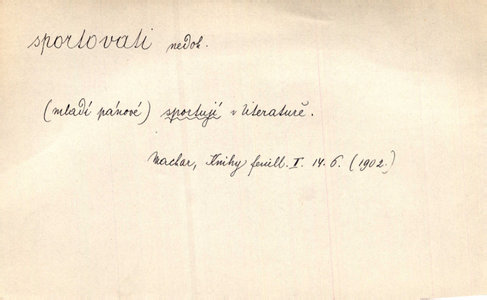 sportovati nedok.
(mladí pánové) sportují v literatuře.
Machar, Knihy feuill. I. 14. 6. (1902.)